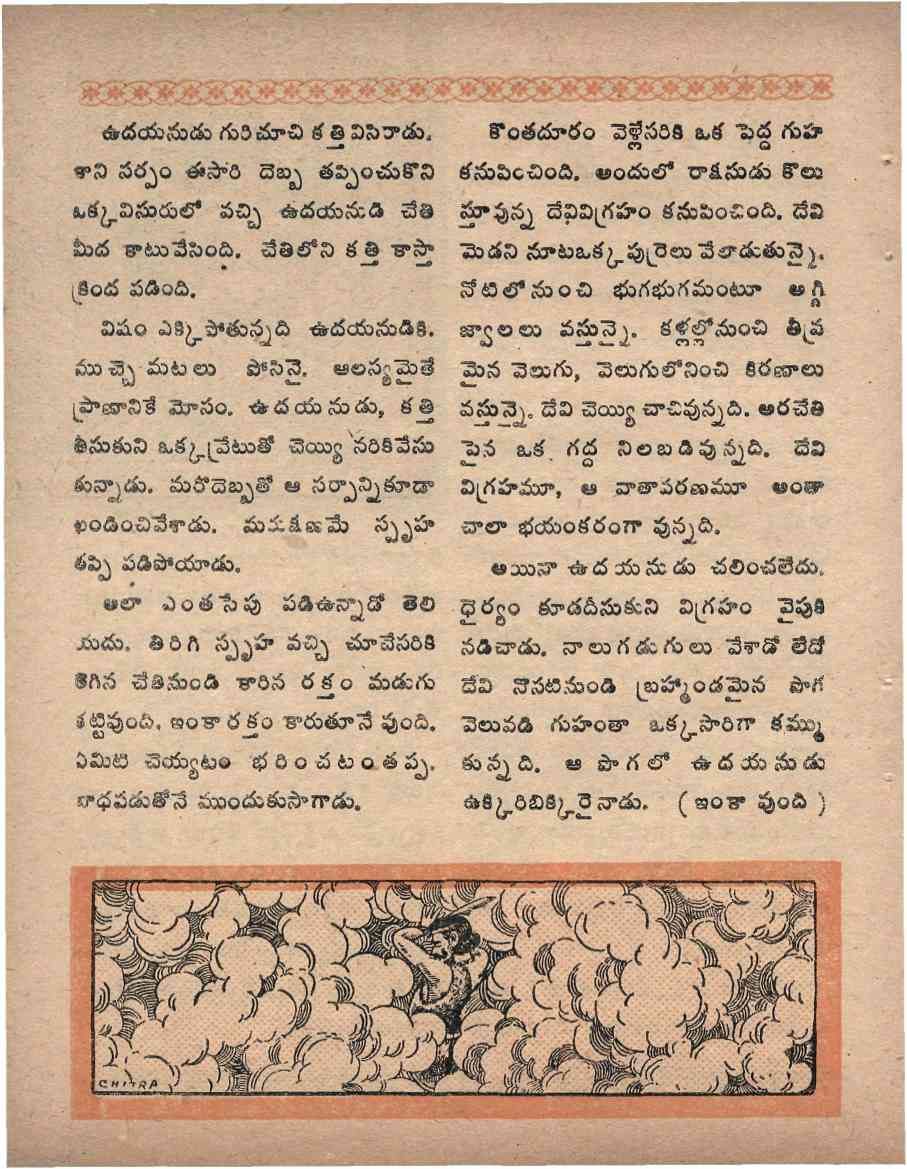 ఉదయనుడు గురిచూచి కత్తి విసిరాడు.
కాని సర్పం ఈసారి దెబ్బ తప్పించుకొని
ఒక్కవిసురులో వచ్చి ఉదయనుడి చేతి
మీద కాటువేసింది. చేతిలోని కత్తి కాస్తా
క్రింద పడింది.
విషం ఎక్కిపోతున్నది ఉదయనుడికి.
ముచ్చెమటలు పోసినై. ఆలస్యమైతే
ప్రాణానికే మోసం. ఉదయనుడు, కత్తి
తీసుకుని ఒక్కవ్రేటుతో చెయ్యి నరికివేసు
కున్నాడు. మరొదెబ్బతో ఆ సర్పాన్నికూడా
ఖండించివేశాడు. మరుక్షణమే స్పృహ
తప్పి పడిపోయాడు.
అలా ఎంతసేపు పడిఉన్నాడో తెలి
యదు. తిరిగి స్పృహ వచ్చి చూచేసరికి
తెగిన చేతినుండి కారిన రక్తం మడుగు
కట్టివుంది. ఇంకా రక్తం కారుతూనే వుంది.
ఏమిటి చెయ్యటం భరించటం తప్ప.
బాధపడుతోనే ముందుకుసాగాడు.
కొంతదూరం వెళ్లేసరికి ఒక పెద్ద గుహ
కనుపించింది. అందులో రాక్షసుడు కొలు
స్తూవున్న దేవివిగ్రహం కనుపించింది. దేవి
మెడని నూటఒక్క పుర్రెలు వేలాడుతున్నై.
నోటిలోనుంచి భుగభుగమంటూ అగ్ని
జ్వాలలు వస్తున్నై. కళ్లల్లోనుంచి తీవ్ర
మైన వెలుగు, వెలుగులోనించి కిరణాలు
వస్తున్నై. దేవి చెయ్యి చాచివున్నది. అరచేతి
పైన ఒక గద్ద నిలబడివున్నది. దేవి
విగ్రహమూ, ఆ వాతావరణమూ అంతా
చాలా భయంకరంగా వున్నది.
అయినా ఉదయనుడు చలించలేదు.
ధైర్యం కూడదీసుకుని విగ్రహం వైపుకి
నడిచాడు. నాలుగడుగులు వేశాడో లేదో
దేవి నొసటినుండి బ్రహ్మాండమైన పొగ
వెలువడి గుహంతా ఒక్కసారిగా కమ్ము
కున్నది. ఆ పొగలో ఉదయనుడు
ఉక్కిరిబిక్కిరైనాడు. (ఇంకా వుంది)
CHITRA